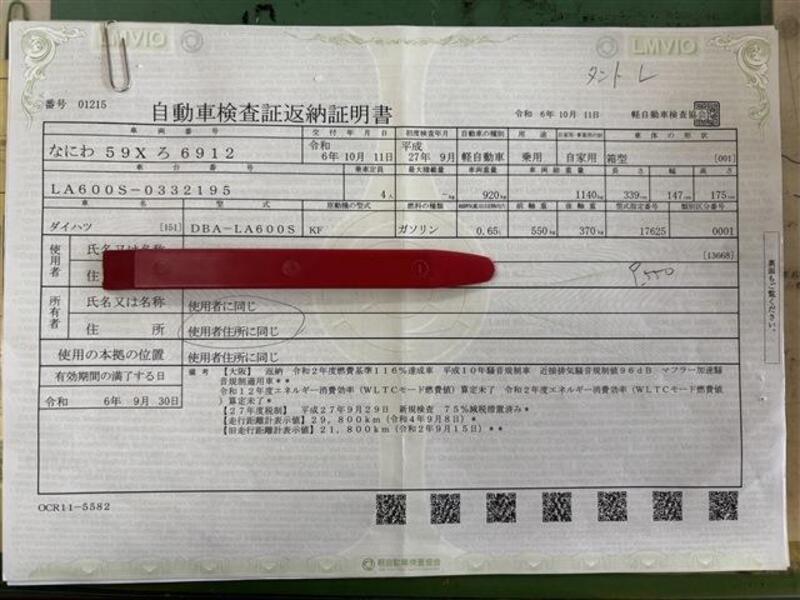 LMVIO
LMVIO
タントL
番号 01215
自動車検査証返納証明書
令和 6年10月11日
軽自動車検査協会
車両番号 交付年月日 初度検査年月 自動車の種別 用途 自家用・事業用の別 車体の形状
なにわ 59X ろ 6912 令和 6年10月11日 平成 27年 9月 軽自動車 乗用 自家用 箱型 [001]
車台番号 乗車定員 最大積載量 車両重量 車両総重量 長さ 幅 高さ
LA600S-0332195 4人 -kg 920kg 1140kg 339cm 147cm 175cm
車名 型式 原動機の型式 燃料の種類 前軸重 後軸重 型式指定番号 類別区分番号
ダイハツ [151] DBA-LA600S KF ガソリン 0.65L 550kg 370kg 17625 0001
使用者 氏名又は名称 [13668]
住
所有者 氏名又は名称 使用者に同じ
住所 使用者住所に同じ
使用の本拠の位置 使用者住所に同じ
裏面もご覧ください。
有効期間の満了する日
令和 6年 9月30日
備考 【大阪】 返納 令和2年度燃費基準116%達成車 平成10年騒音規制車 近接排気騒音規制値96dB マフラー加速騒
音規制適用車**
令和12年度エネルギー消費効率(WLTCモード燃費値)算定未了 令和2年度エネルギー消費効率(WLTCモード燃費値
)算定未了*
【27年度税制】 平成27年9月29日 新規検査 75%減税措置済み*
【走行距離計表示値】29,800km(令和4年9月8日)*
【旧走行距離計表示値】21,800km(令和2年9月15日)**
OCR11-5582
軽自動車検査協会